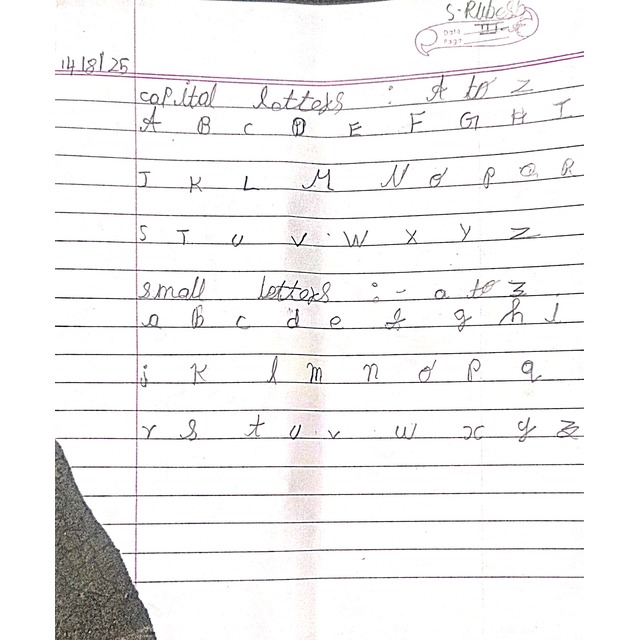 S. Rubesh
Date
Page III
14/8/25
capital letters : A to Z
A B C D E F G H I
J K L M N O P Q R
S T U V W X Y Z
small letters :- a to z
a b c d e f g h i
j k l m n o p q
r s t u v w x y z